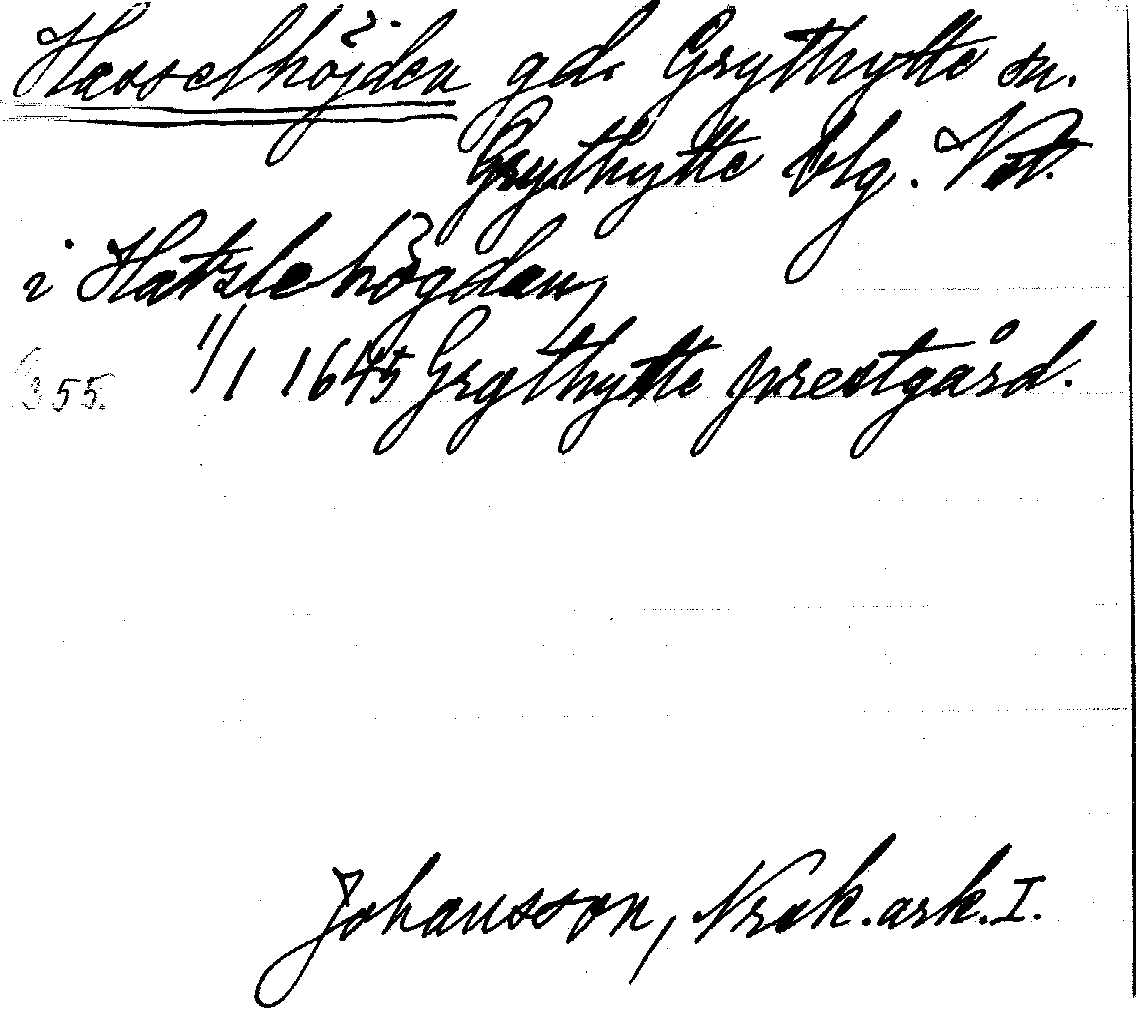 Hasselhöjden gd. Grythytte sn.
Grythytte blg. Vstm.
i Hatslehögden,
355. 1/1 1645 Grythytte prestgård.
Johansson, Norak.ark.I.